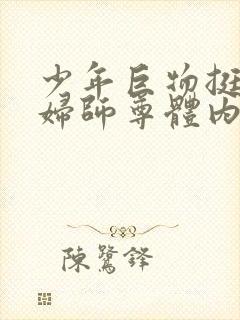 少年巨物挺
婦師尊體內
陳鷺鋒